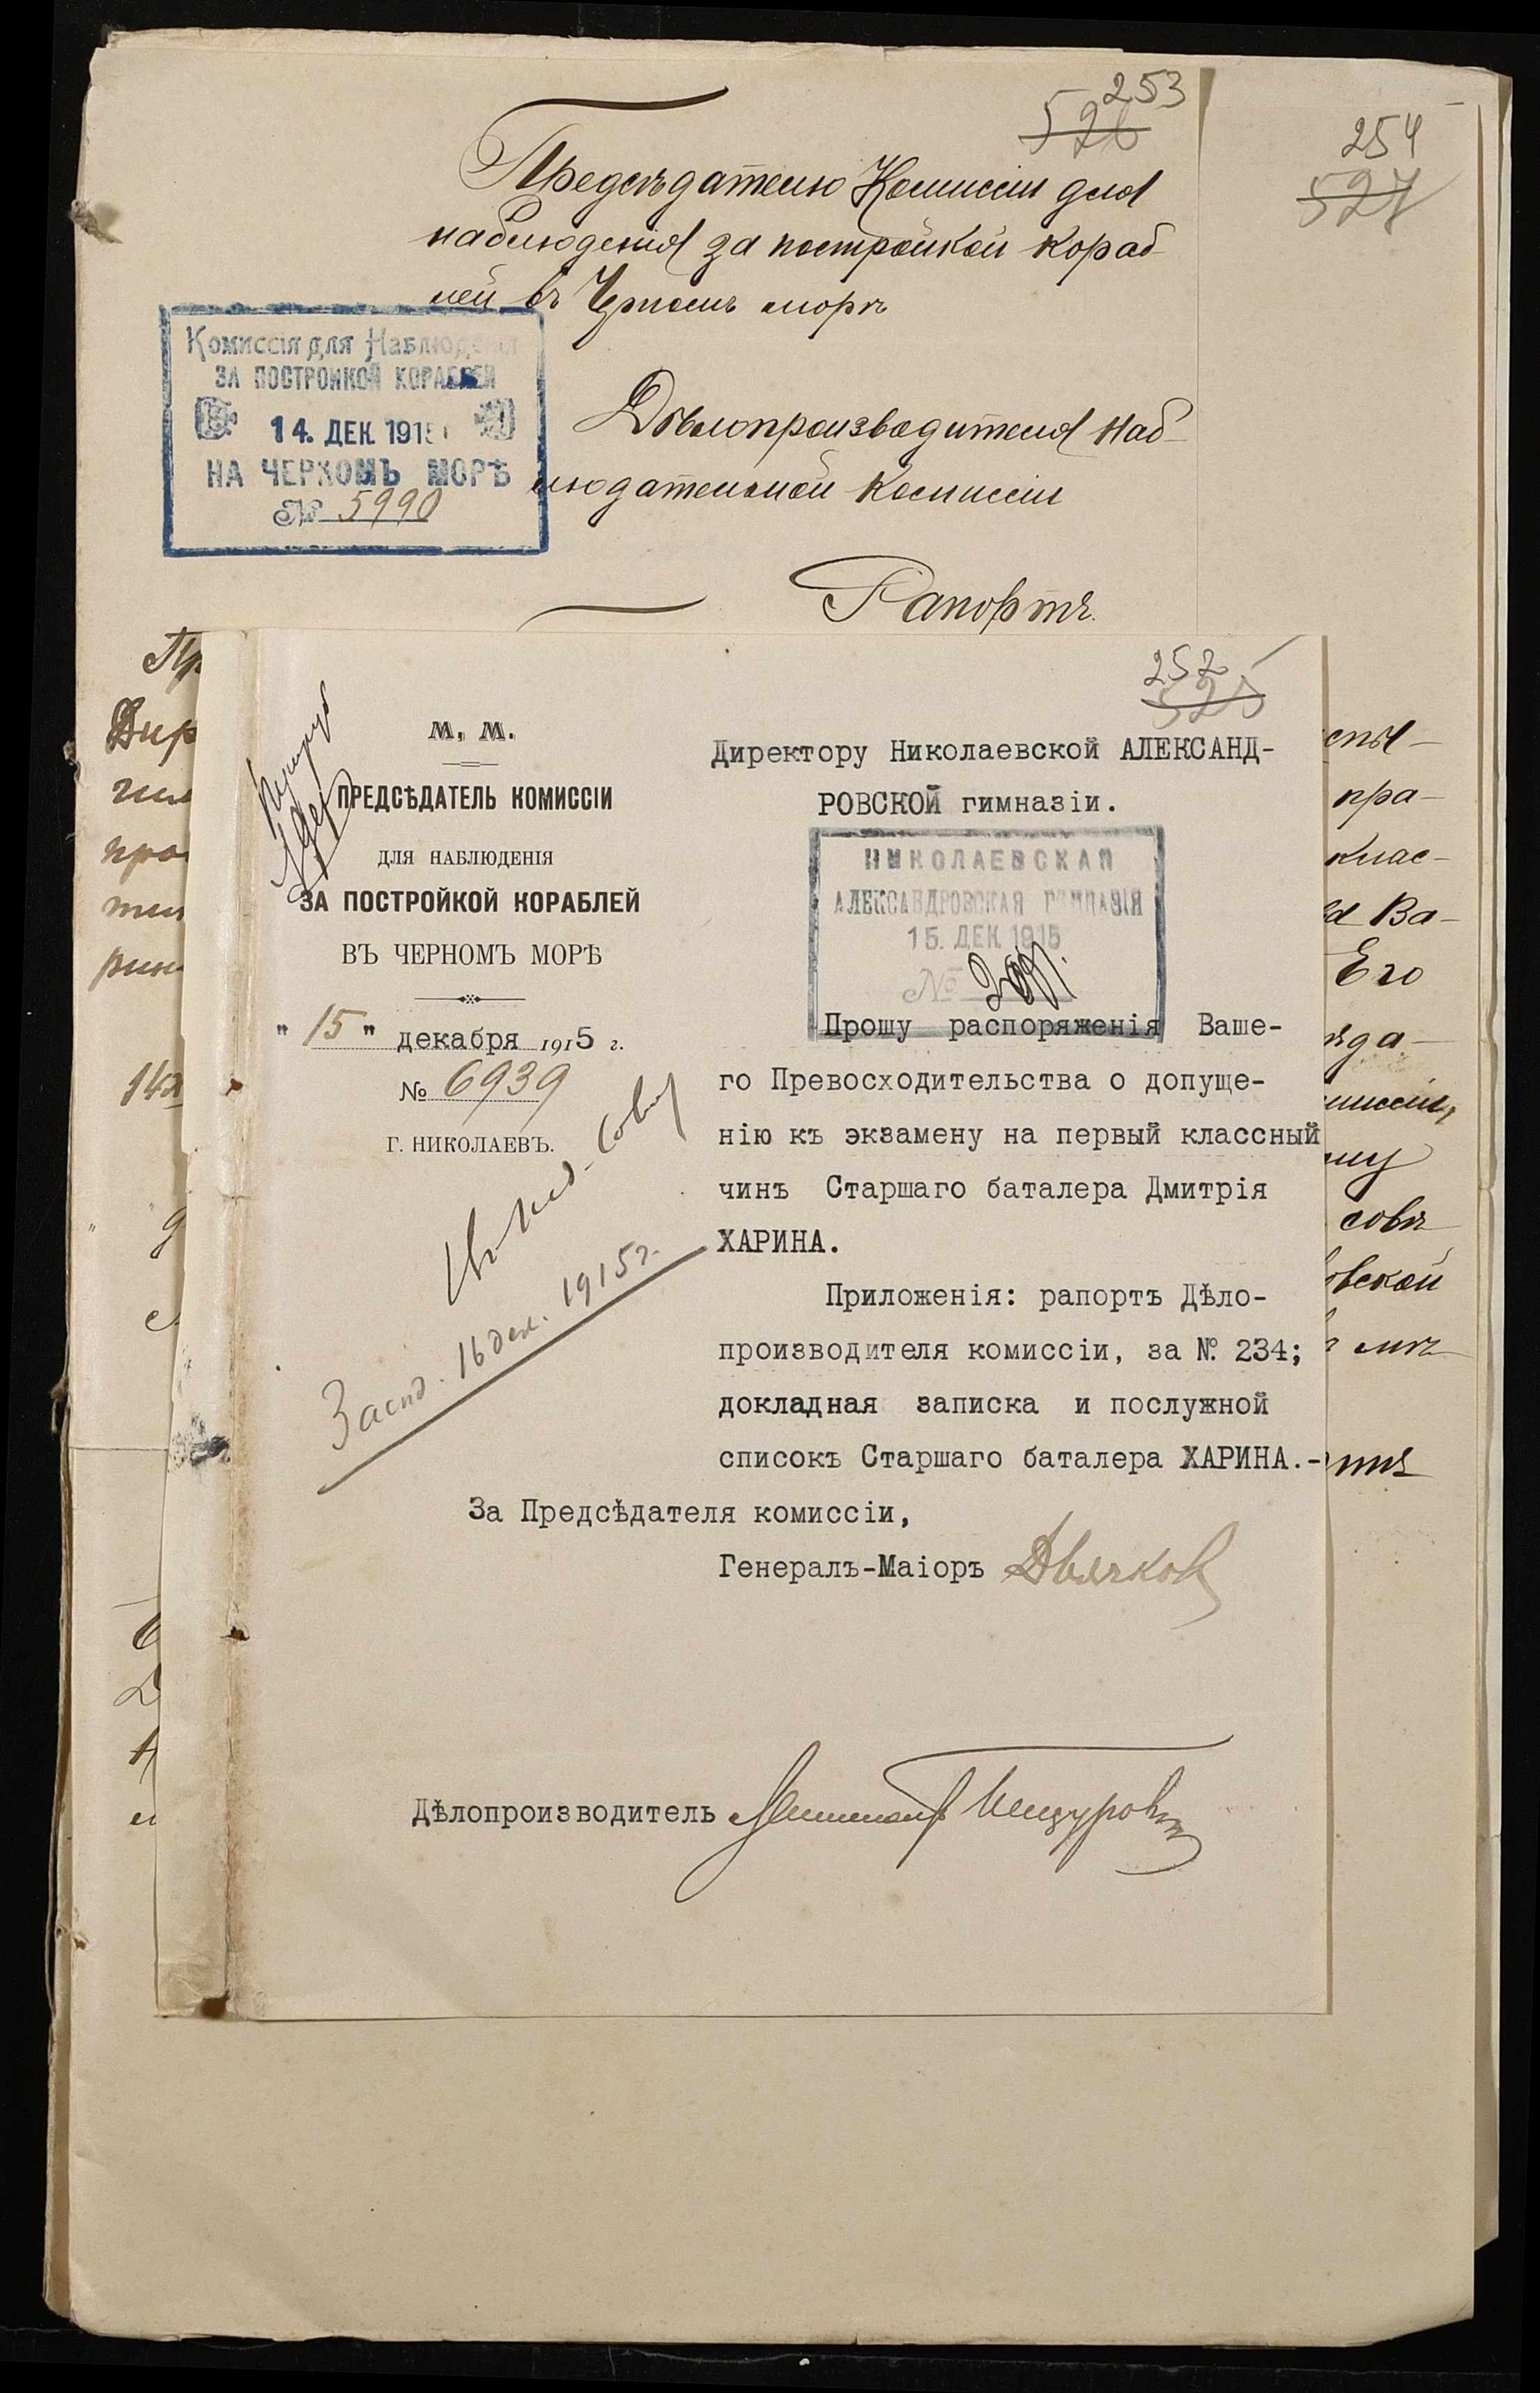 253
526
254
527
Предсѣдателю Комиссіи для
наблюденія за постройкой кораб-
лей въ Черномъ морѣ
Комиссія для Наблюденія
ЗА ПОСТРОЙКОЙ КОРАБЛЕЙ
14. ДЕК. 1915
НА ЧЕРНОМЪ МОРѢ
№ 5990
Дѣлопроизводителя наб-
людательной комиссіи
Рапортъ.
252
525
М. М.
ПРЕДСѢДАТЕЛЬ КОМИССІИ
ДЛЯ НАБЛЮДЕНІЯ
ЗА ПОСТРОЙКОЙ КОРАБЛЕЙ
ВЪ ЧЕРНОМЪ МОРѢ
"15" декабря 1915 г.
№ 6939
Г. НИКОЛАЕВЪ.
Засѣд. 16 дек. 1915 г.
Директору Николаевской АЛЕКСАНД-
РОВСКОЙ гимназіи.
НИКОЛАЕВСКАЯ
АЛЕКСАНДРОВСКАЯ ГИМНАЗІЯ
15. ДЕК. 1915
№
Прошу распоряженія Ваше-
го Превосходительства о допуще-
нію къ экзамену на первый классный
чинъ Старшаго баталера Дмитрія
ХАРИНА.
Приложенія: рапортъ Дѣло-
производителя комиссіи, за №. 234;
докладная записка и послужной
списокъ Старшаго баталера ХАРИНА.-
За Предсѣдателя комиссіи,
Генералъ-Маіоръ Дьячков
Дѣлопроизводитель
пра-
клас-
Ва-
Его